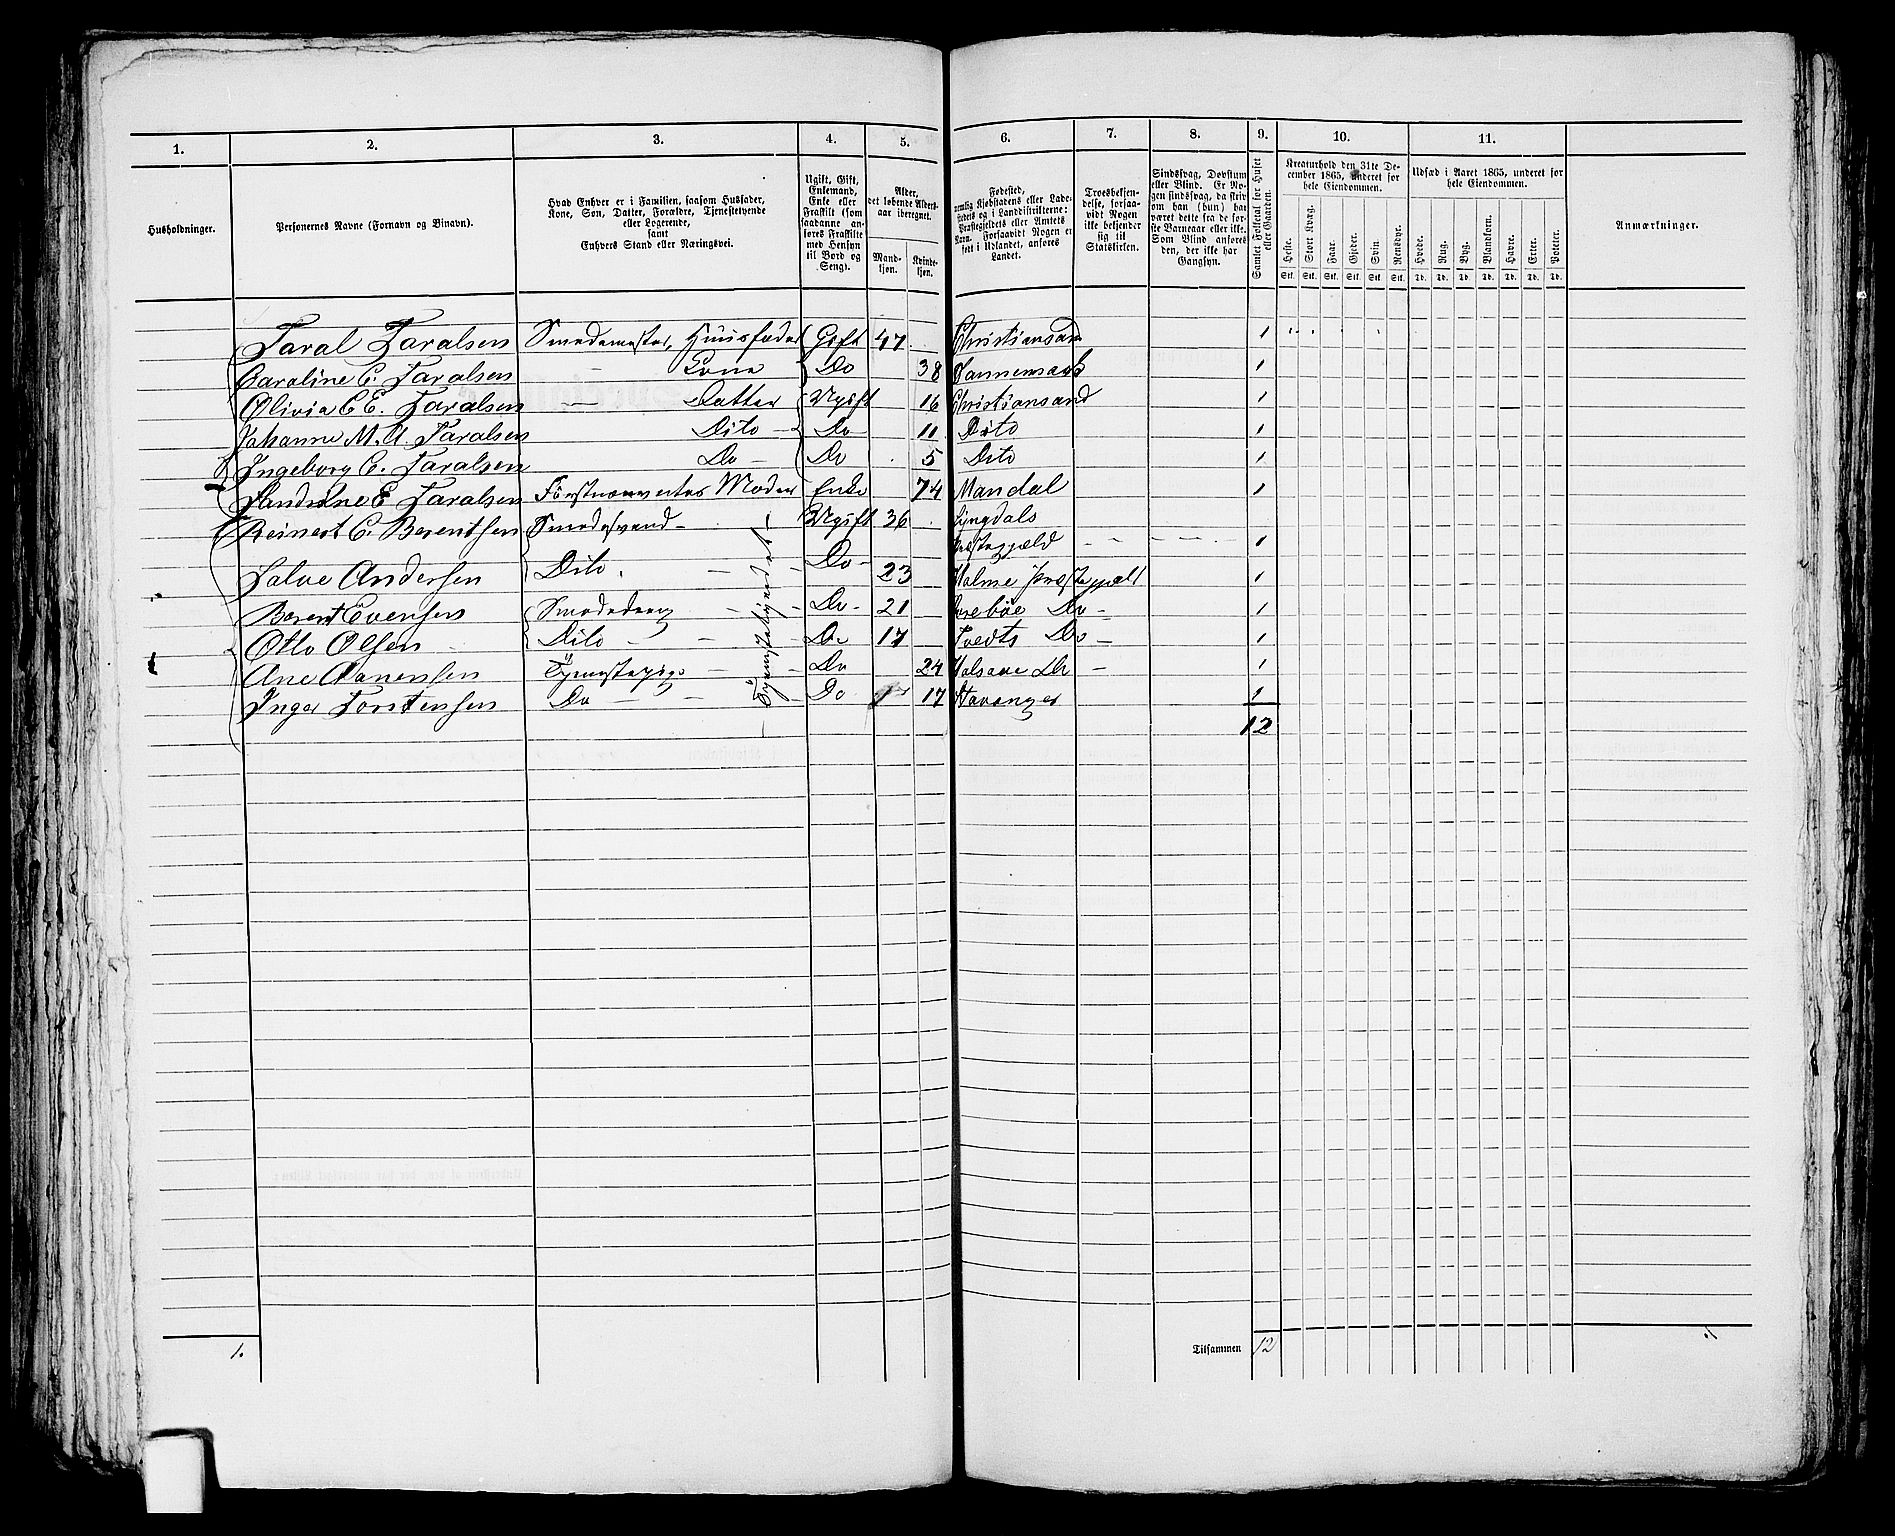 1. 2. 3. 4. 5. 6. 7. 8. 9. 10. 11.
Husholdninger.
Personernes Navne (Fornavn og Binavn).
Hvad Enhver er i Familien, saasom Husfader,
Kone, Søn, Datter, Forældre, Tjenestetyende
eller Logerende,
samt
Enhvers Stand eller Næringsvei.
Ugift, Gift,
Enkemand,
Enke eller
Fraskilt (som
saadanne an-
føres Fraskilte
med Hensyn
til Bord og
Seng).
Alder,
det løbende Alders-
aar iberegnet.
Mand-
kjøn.
Kvinde-
kjøn.
Fødested,
nemlig Kjøbstadens eller Lade-
stedets og i Landdistrikterne:
Præstegjeldets eller Amtets
Navn. Forsaavidt Nogen er
født i Udlandet, anføres
Landet.
Troesbekjen-
delse, forsaa-
vidt Nogen
ikke bekjender
sig til
Statskirken.
Sindssvag, Døvstum
eller Blind. Er No-
gen sindssvag, da skriv
om han (hun) har
været dette fra de før-
ste Barneaar eller ikke.
Som Blind anføres
den, der ikke har
Gangsyn.
Samlet Folketal for Huset
eller Gaarden.
Kreaturhold den 31te De-
cember 1865, underet for
hele Eiendommen.
Heste. Stort Kvæg. Faar. Gjeder. Svin. Rensdyr.
Stk. Stk. Stk. Stk. Stk. Stk.
Udsæd i Aaret 1865, underet for
hele Eiendommen.
Hvede. Rug. Byg. Blandkorn. Havre. Erter. Poteter.
Td. Td. Td. Td. Td. Td. Td.
Anmærkninger.
Taral Taralsen Smedemester, Huusfader Gift 47 Christiansand 1
Caroline C. Taralsen — Kone Do 38 Dannemark 1
Olivia C E. Taralsen — Datter Ugift 16 Christiansand 1
Johanne M. A. Taralsen Dito — Do 11 Dito 1
Ingeborg C. Taralsen Do — Do 5 Dito 1
Sandrine E Taralsen Førstnævntes Moder Enke 74 Mandal 1
Reinert C. Berentsen Smedesvend — Ugift 36 Lyngdals
Præstegjæld 1
Salve Andersen Dito Do 23 Holme Præstegjæld 1
Berent Evensen Smededreng Do 21 Do 1
Otto Olsen Dito Do 17 Tvedts Do 1
Ane Aanensen Tjenestepige Do 24 Do 1
Inger Torstensen Do Do 17 Stavanger 1
Tjenestetyende
12
1.
Tilsammen 12